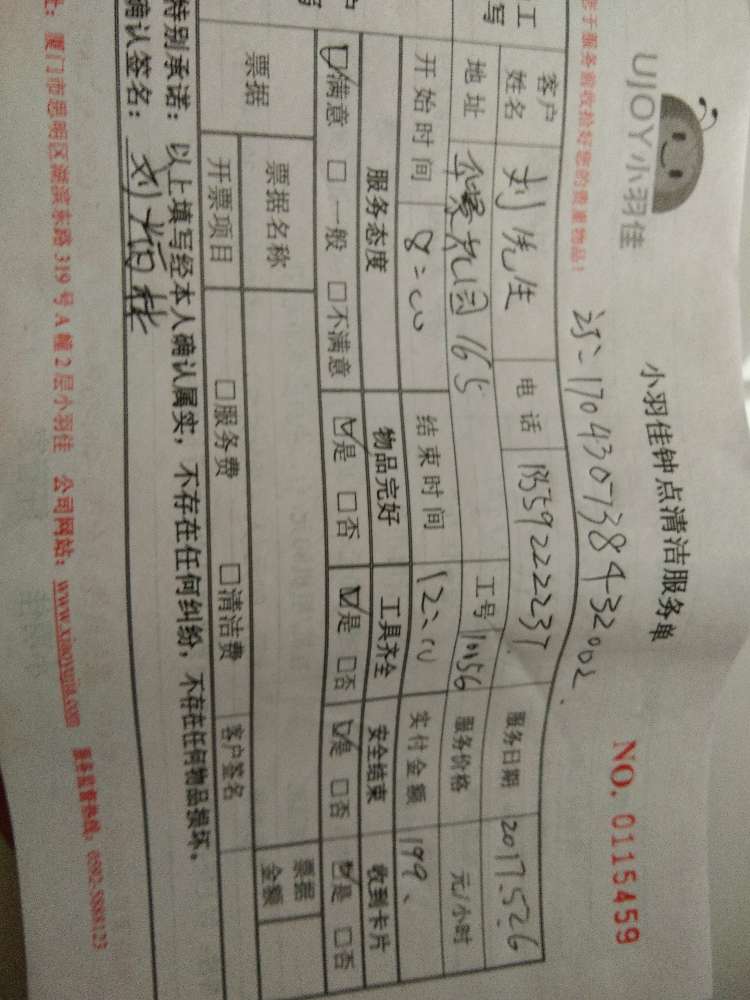 UJOY小羽佳
小羽佳钟点清洁服务单
NO. 0115459
于服务前收拾好您的贵重物品!
客户姓名 刘先生 电话 服务日期 2017.5.26
地址 165 工号 10156 服务价格 元/小时
开始时间 8:00 结束时间 12:00 实付金额 199.
服务态度 物品完好 工具齐全 安全结束 收到卡片
☑满意 □一般 □不满意 ☑是 □否 ☑是 □否 ☑是 □否 ☑是 □否
票据 票据名称 票据金额
开票项目 □服务费 □清洁费 客户签名
特别承诺：以上填写经本人确认属实，不存在任何纠纷，不存在任何物品损坏。
确认签名：
址：厦门市思明区湖滨东路319号A幢2层小羽佳 公司网站：www.xiaoyujia.com 服务监督热线：0592-5888123